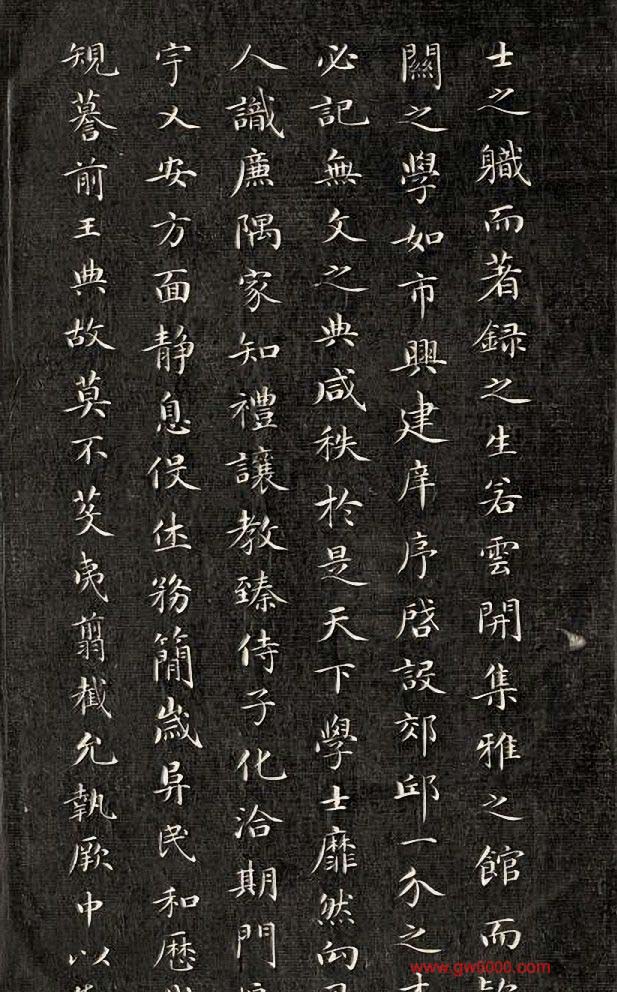 士之職而著録之生若雲開集雅之館而
闕之學如市興建庠序啓設郊邱一介之
必記無文之典咸秩於是天下學士靡然向
人識廉隅家知禮讓教臻侍子化洽期門
宇乂安方面静息伇休務簡歲昇民和歷
規謩前王典故莫不芟夷翦截允執厥中以
www.gw6000.com